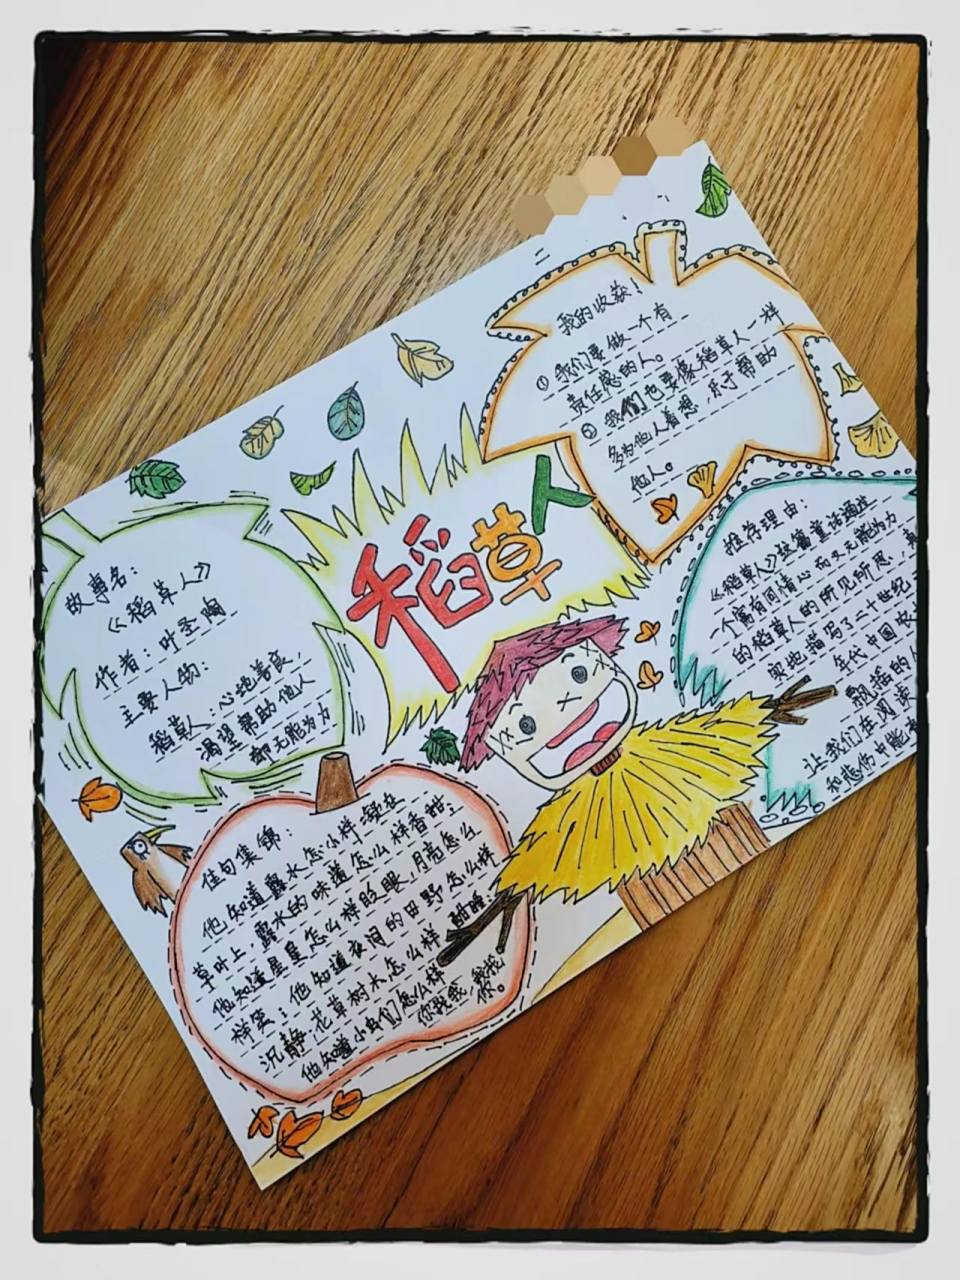 稻草人
二
故事名:
《稻草人》
作者:叶圣陶
主要人物:
稻草人:心地善良,
渴望帮助他人
却无能为力
我的收获!
①我们要做一个有
责任感的人。
②我们也要像稻草人一样
多为他人着想,乐于帮助
他人。
推荐理由:
《稻草人》这篇童话通过
一个富有同情心而又无能为力
的稻草人的所见所思,真
实地描写了二十世纪
年代中国农
飘摇的人
让我们在阅读
和悲伤中能
佳句集锦:
他知道露水怎么样凝在
草叶上,露水的味道怎么样香甜;
他知道星星怎么样眨眼,月亮怎么
样笑;他知道夜间的田野怎么样
沉静,花草树木怎么样酣睡;
他知道小虫们怎么样
你找我,我找
你。